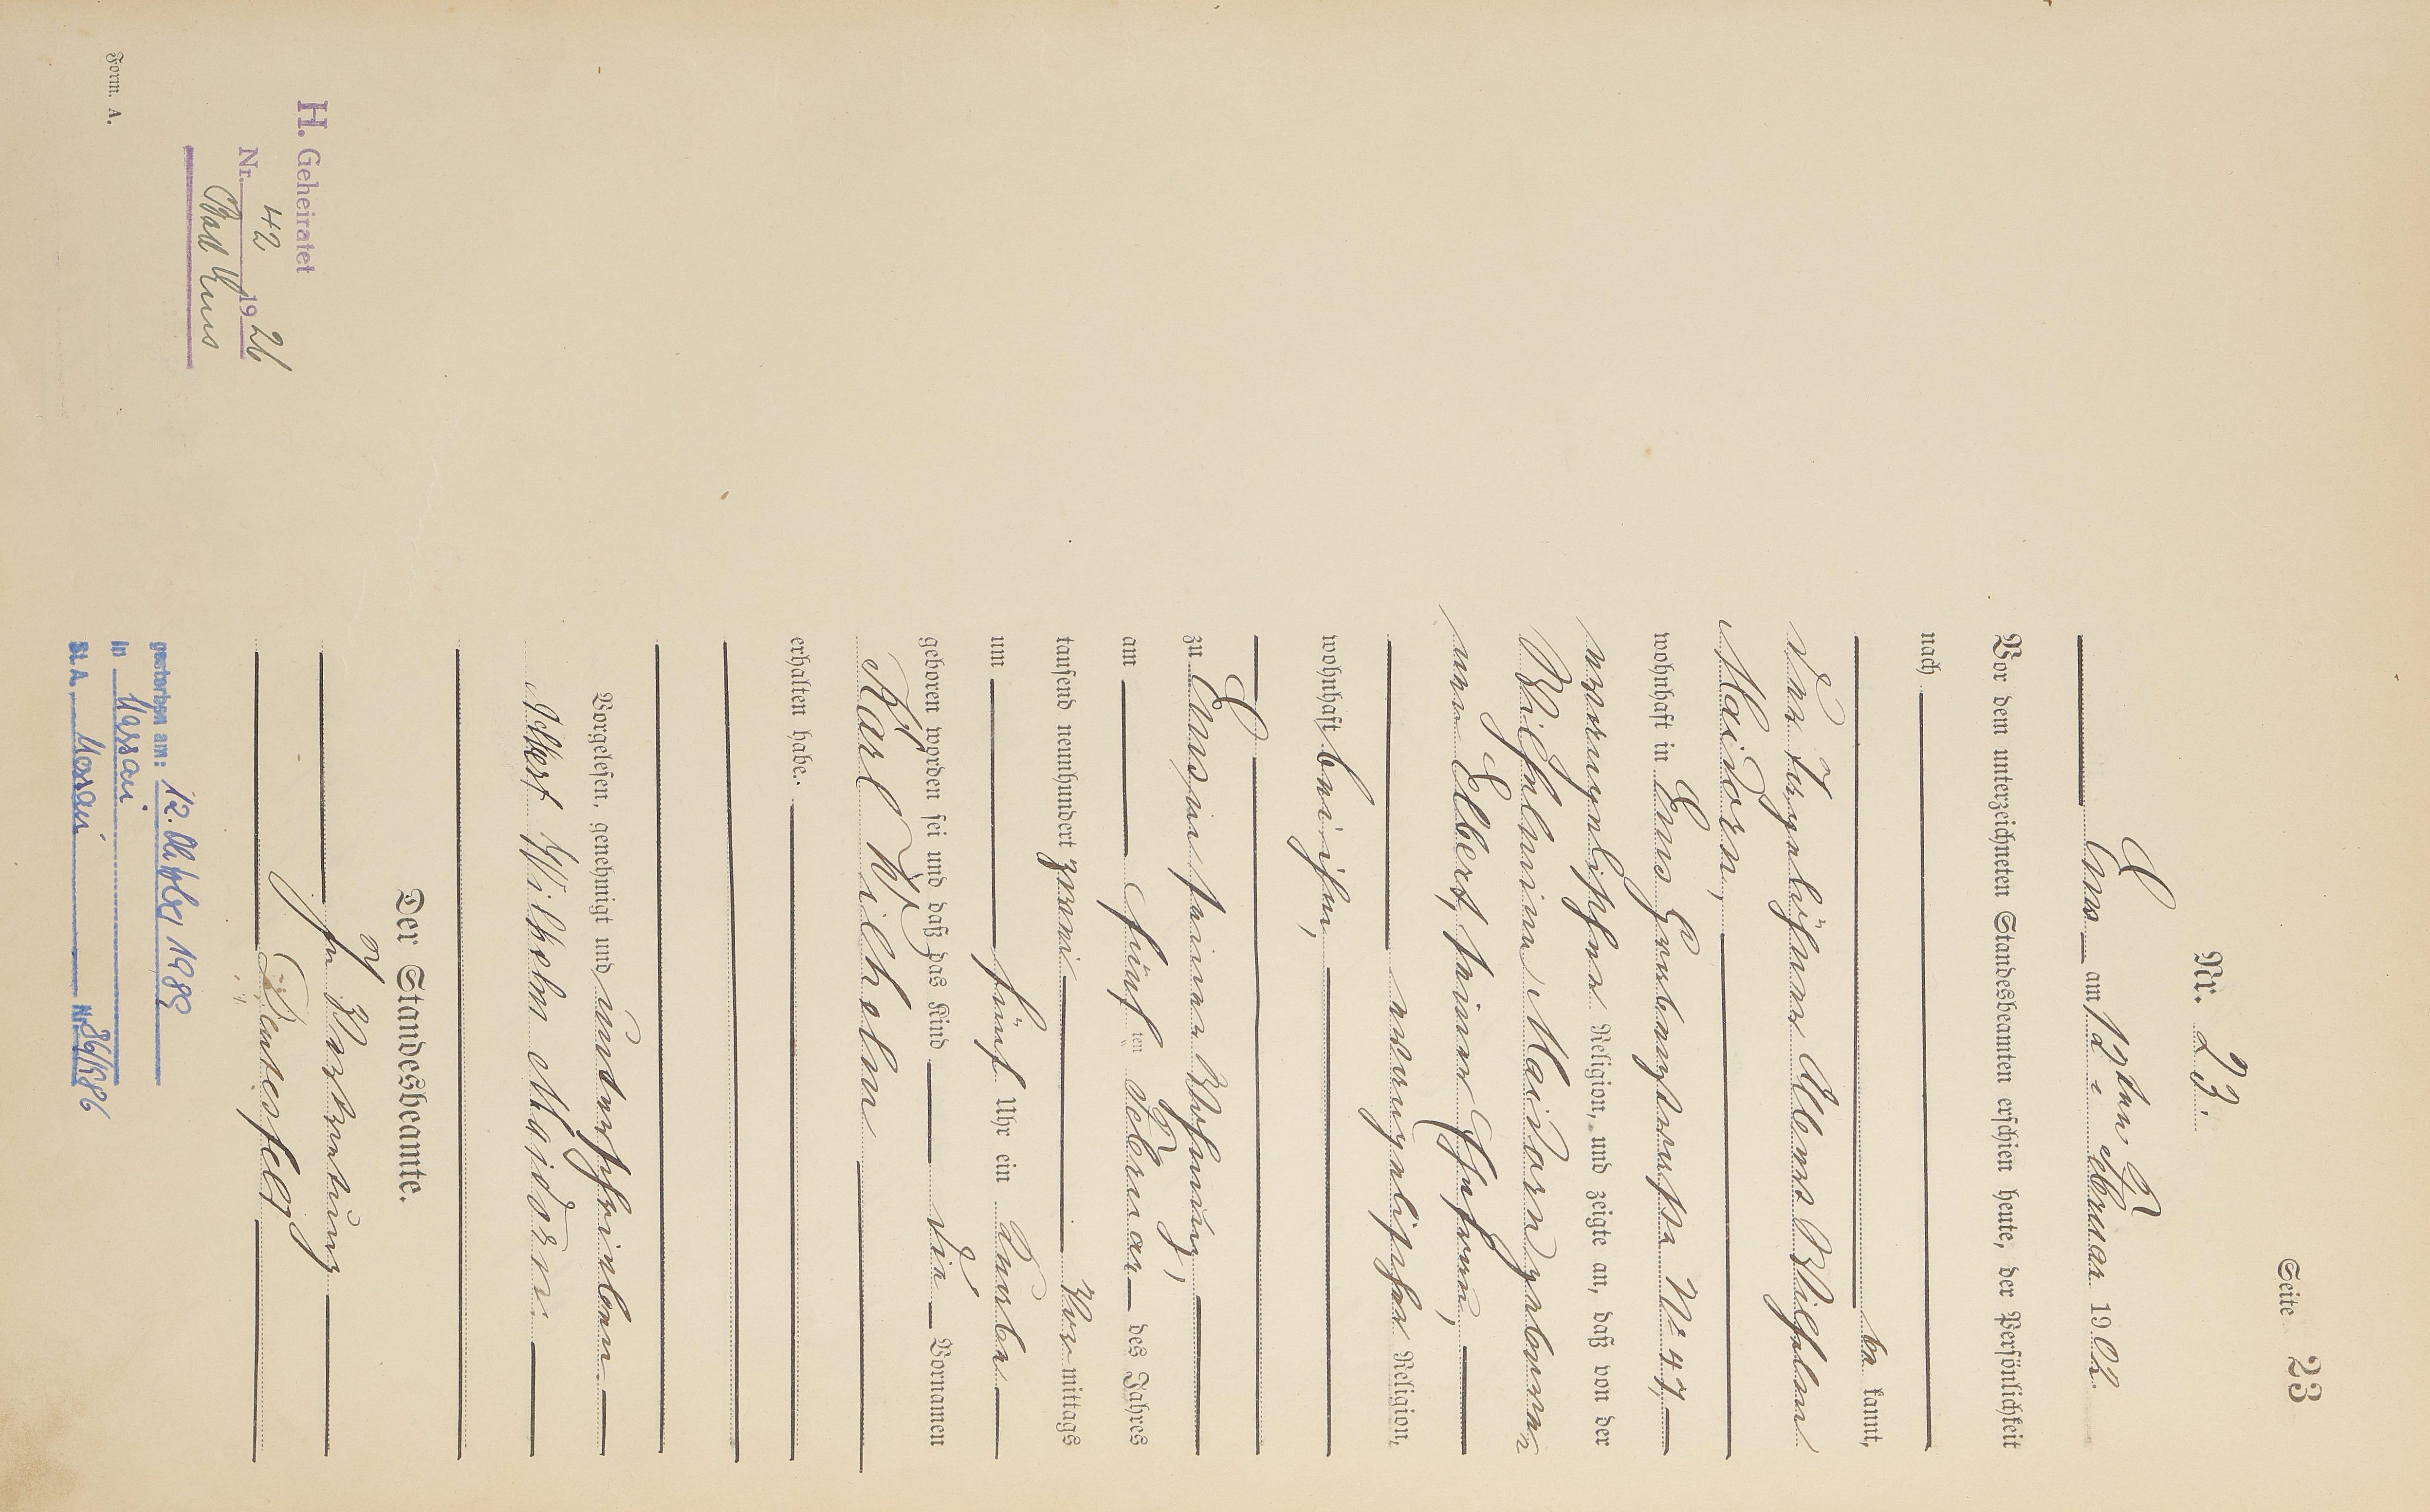 Seite 23
Nr. 23.
Ems am 12ten Februar 1902.
Vor dem unterzeichneten Standesbeamten erschien heute, der Persönlichkeit
nach
be kannt,
der Tagelöhner Albert Wilhelm
Maidorn,
wohnhaft in Ems Grabenstraße № 47
evangelischer Religion, und zeigte an, daß von der
Wilhelmine Maidorn geborenen
Elbert, seiner Ehefrau,
evangelischer Religion,
wohnhaft bei ihm,
zu Ems in seiner Wohnung,
am fünf ten Februar des Jahres
tausend neunhundert zwei Vor mittags
um fünf Uhr ein Knabe
geboren worden sei und daß das Kind die Vornamen
Karl Wilhelm
erhalten habe.
Vorgelesen, genehmigt und unterschrieben
Albert Wilhelm Maidorn
Der Standesbeamte.
In Vertretung
H. Geheiratet
Nr. 42 1926
Bad Ems
Form. A.
gestorben am: 12. Oktober 1983
in Nassau
St. A. Nassau Nr. 86/1986